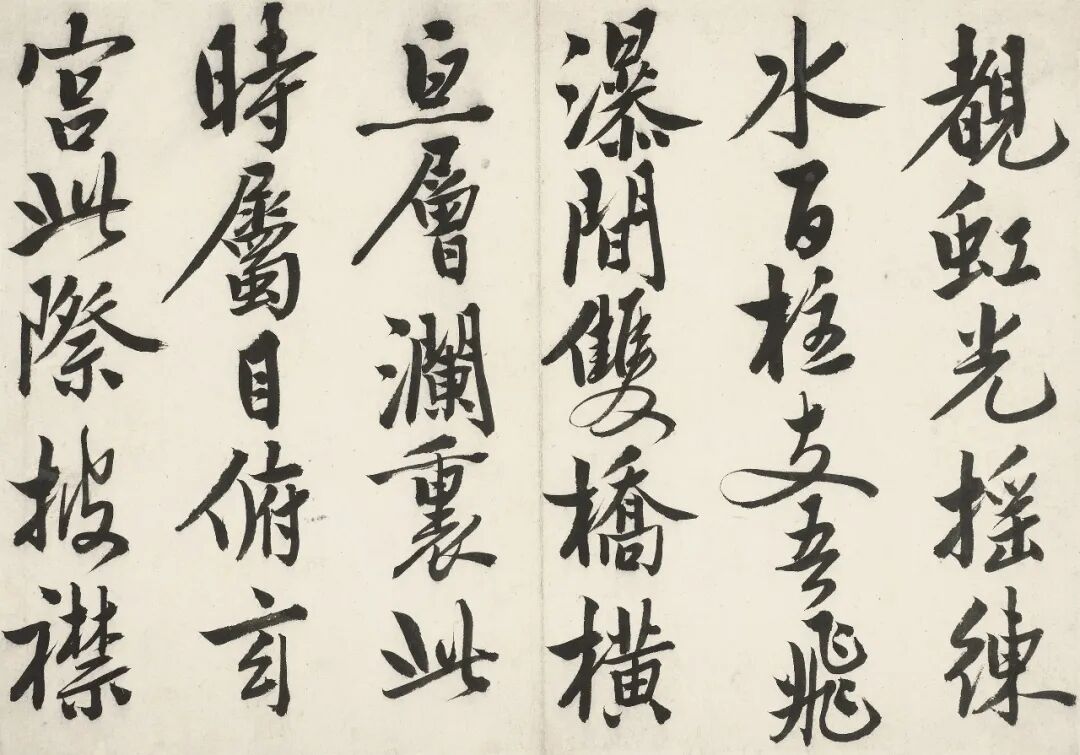 觀虹光摇練
水百柱支吾飛
瀑間雙橋橫
亘層瀾裏此
時屬目俯玄
宮此際披襟